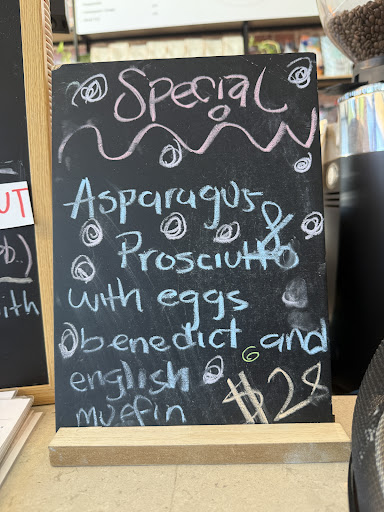 Special
Asparagus &
Prosciutto
with eggs
benedict and
english
muffin $28
UT
with